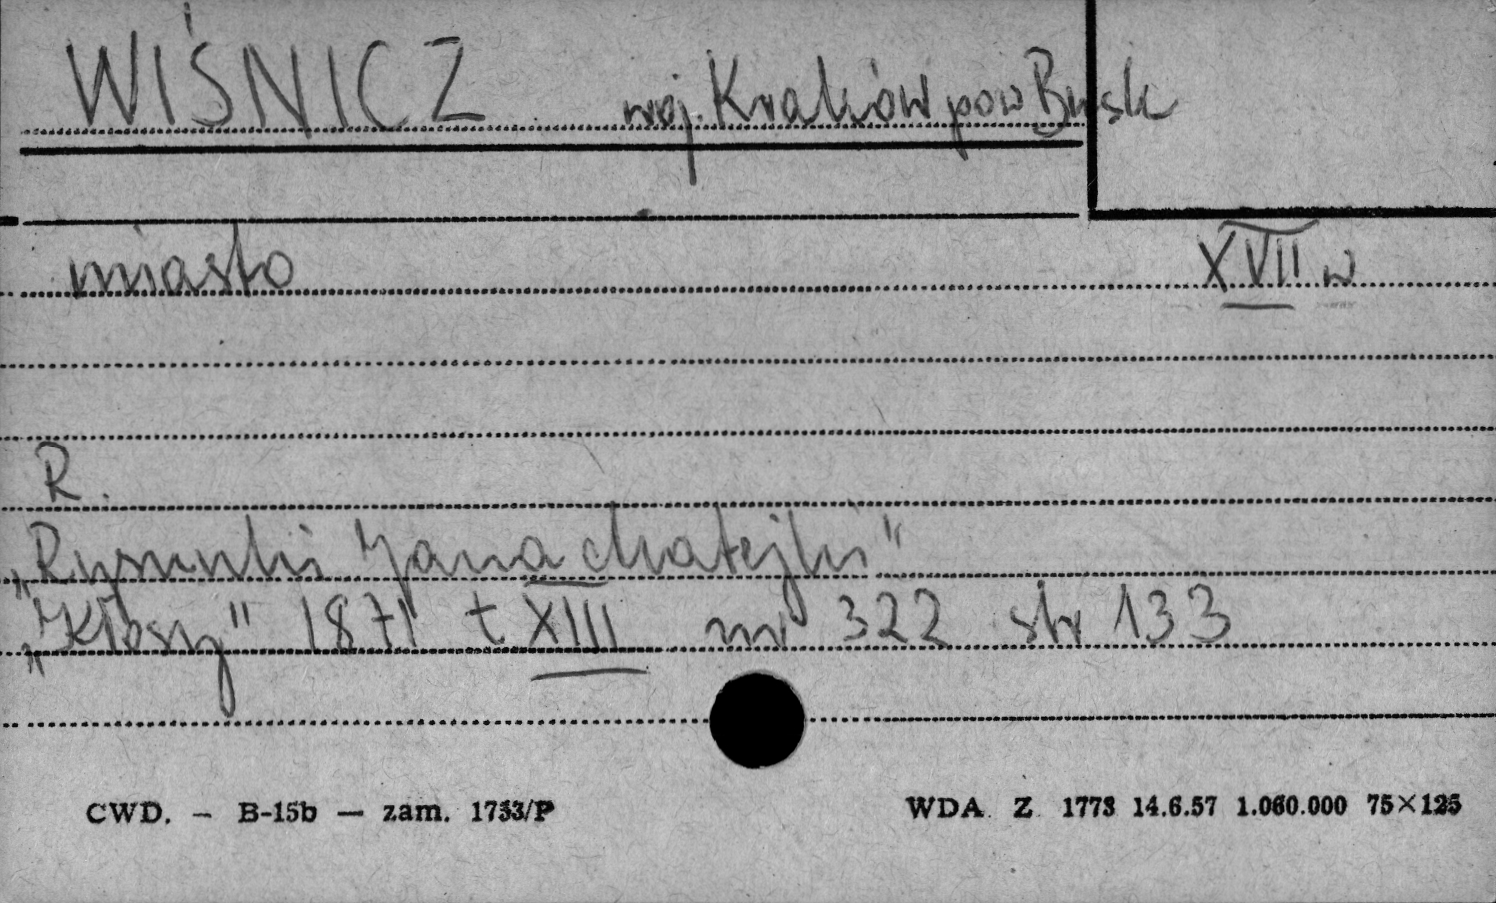 WIŚNICZ woj. Kraków pow Busk
miasto XVII w
R.
„Rysunki Jana Matejki"
„Kłosy" 1871 t XIII nr 322 str 133
CWD. – B-15b — zam. 1753/P WDA Z 1773 14.6.57 1.060.000 75×125